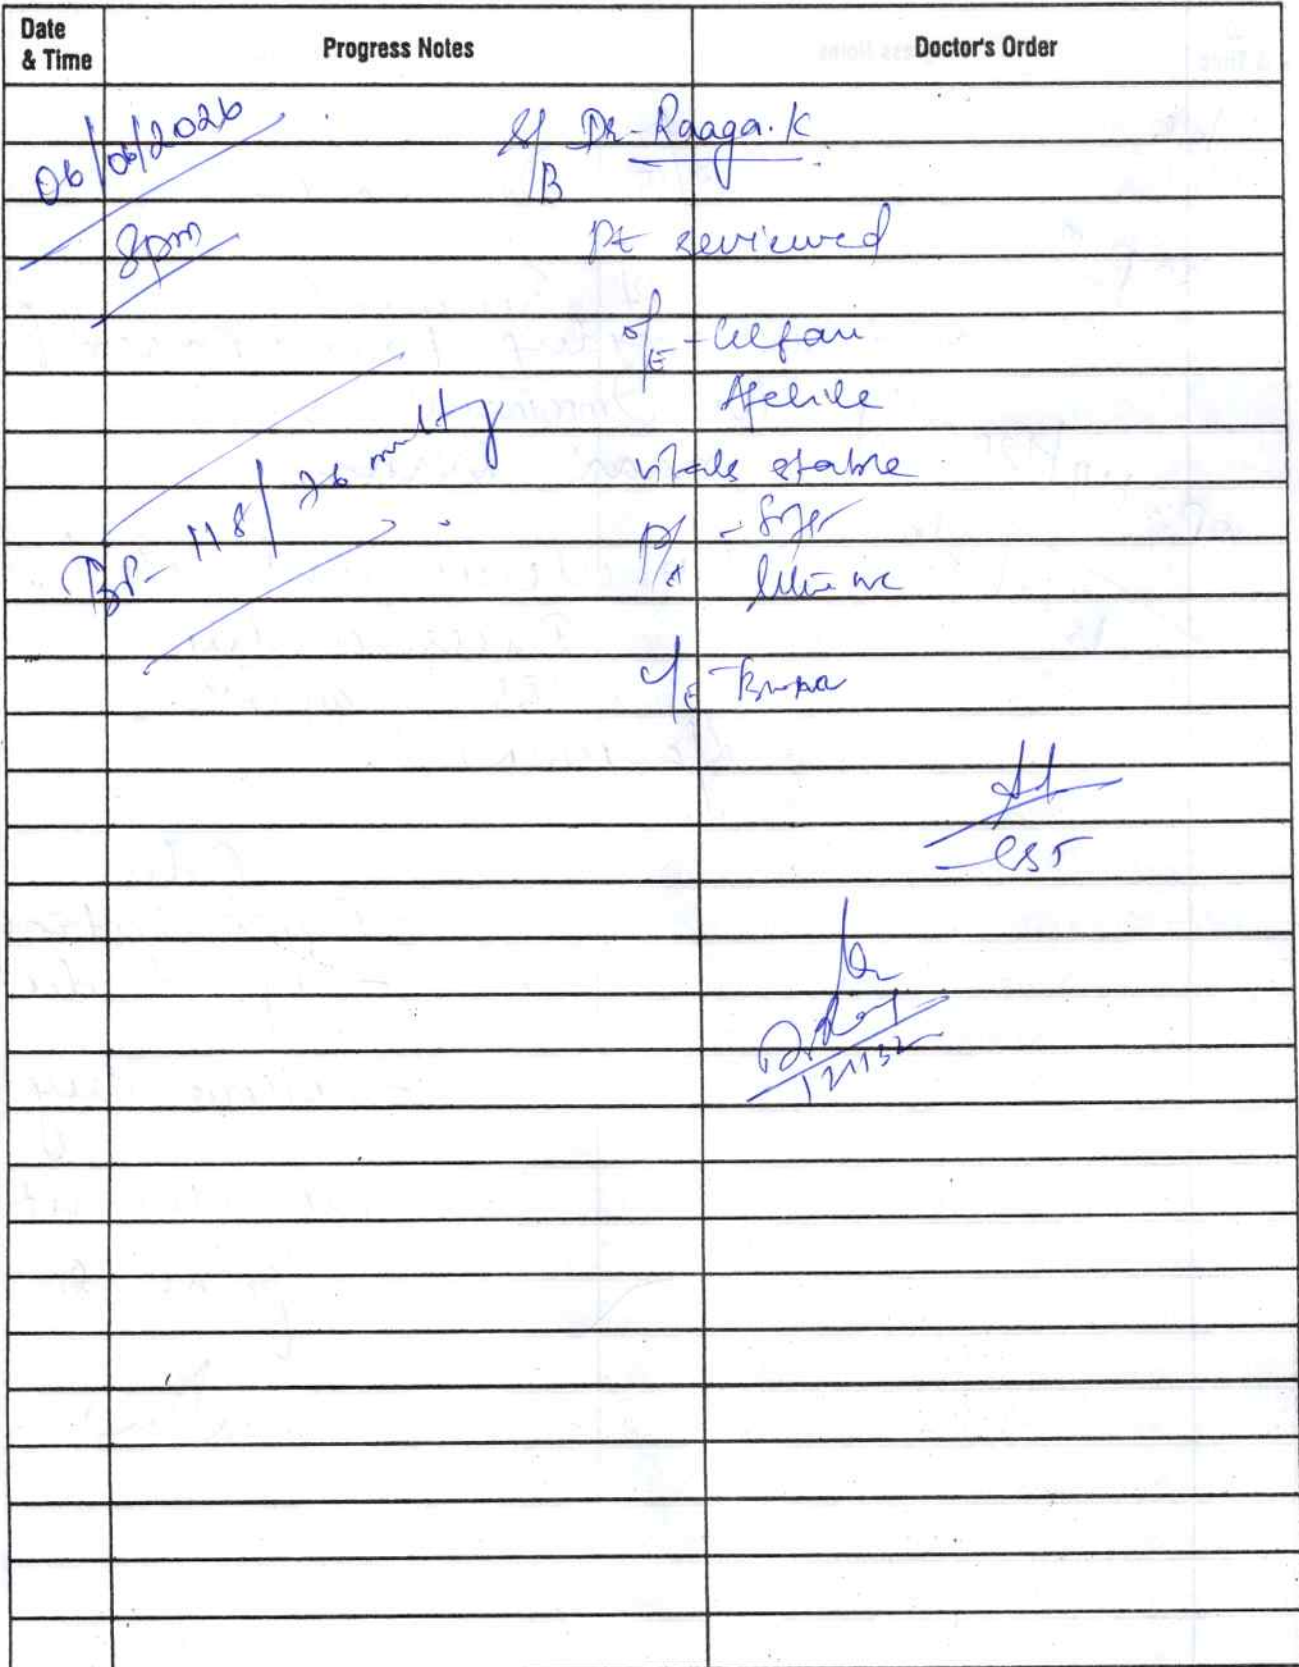 Date & Time Progress Notes Doctor's Order
06/06/2026
S/B Dr-Raaga.K
8pm
Pt reviewed
O/E - GC fair
Afebrile
BP- 118/76 mmHg
vitals stable
P/A - Soft
L/E -
CST
Dr
121132